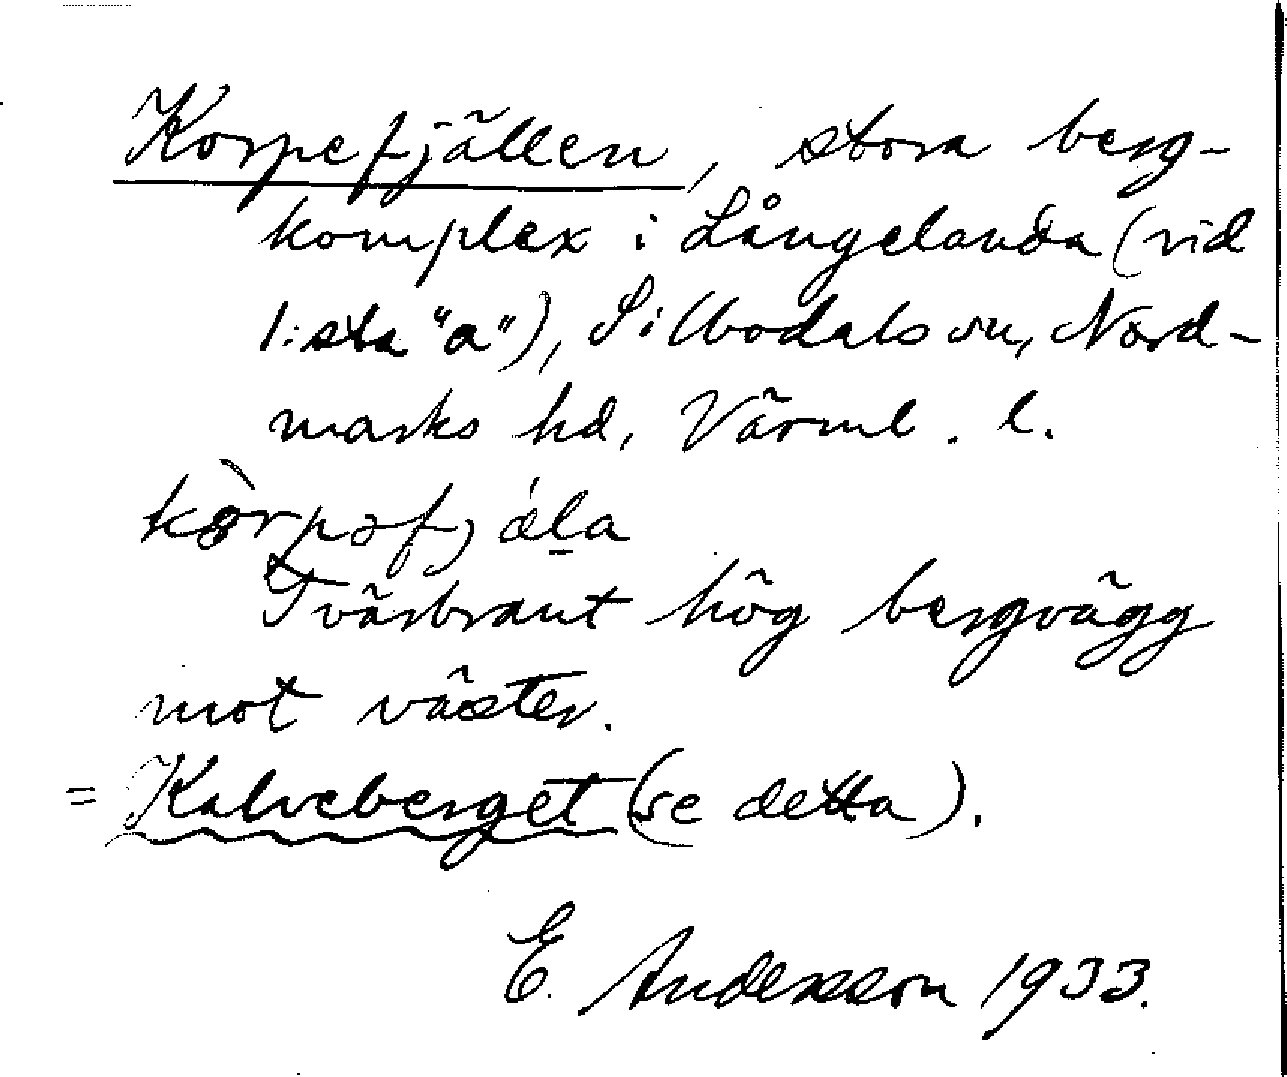 Korpefjällen, stora berg-
komplex i Långelanda (vid
1:sta "a"), Silbodals sn, Nord-
marks hd, Värml. l.
kòrpəfjá̈la
Tvärbrant hög bergvägg
mot väster.
= Kalveberget (se detta).
E. Andersson 1933.